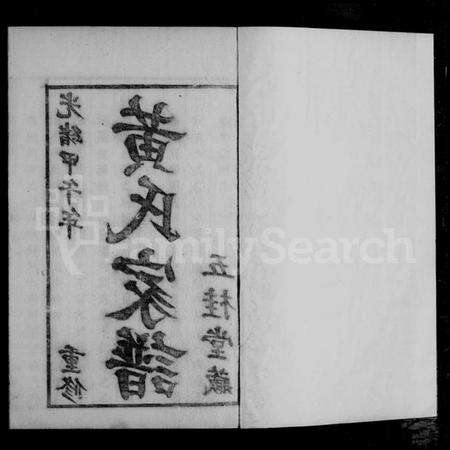 光緒甲午年 重修
黃氏家譜
五桂堂藏
FamilySearch